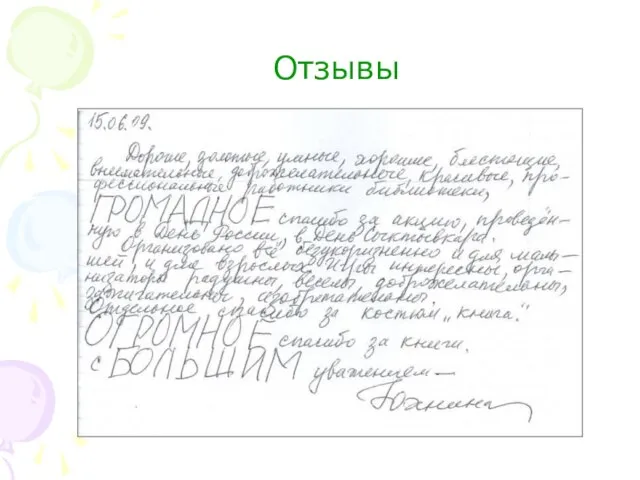 Отзывы
15.06.09.
Дорогие, золотые, умные, хорошие, блестящие,
внимательные, доброжелательные, красивые, про-
фессиональные работники библиотеки,
ГРОМАДНОЕ спасибо за акцию, проведён-
ную в День России, в День Сыктывкара.
Организовано всё безукоризненно и для малы-
шей, и для взрослых. Игры интересны, орга-
низаторы радушны, веселы, доброжелательны,
зажигательны, изобретательны.
Отдельное спасибо за костюм „книга."
ОГРОМНОЕ спасибо за книги.
С БОЛЬШИМ уважением —